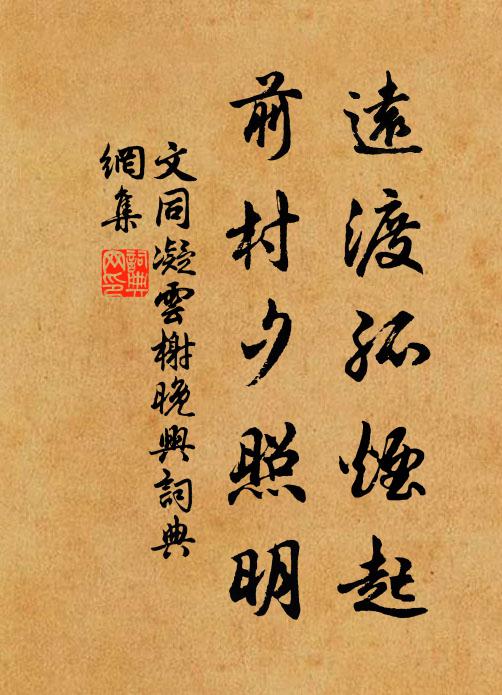 遠渡孤煙起
前村夕照明
文同凝雲榭晚興詞典
網集
詞典
网印